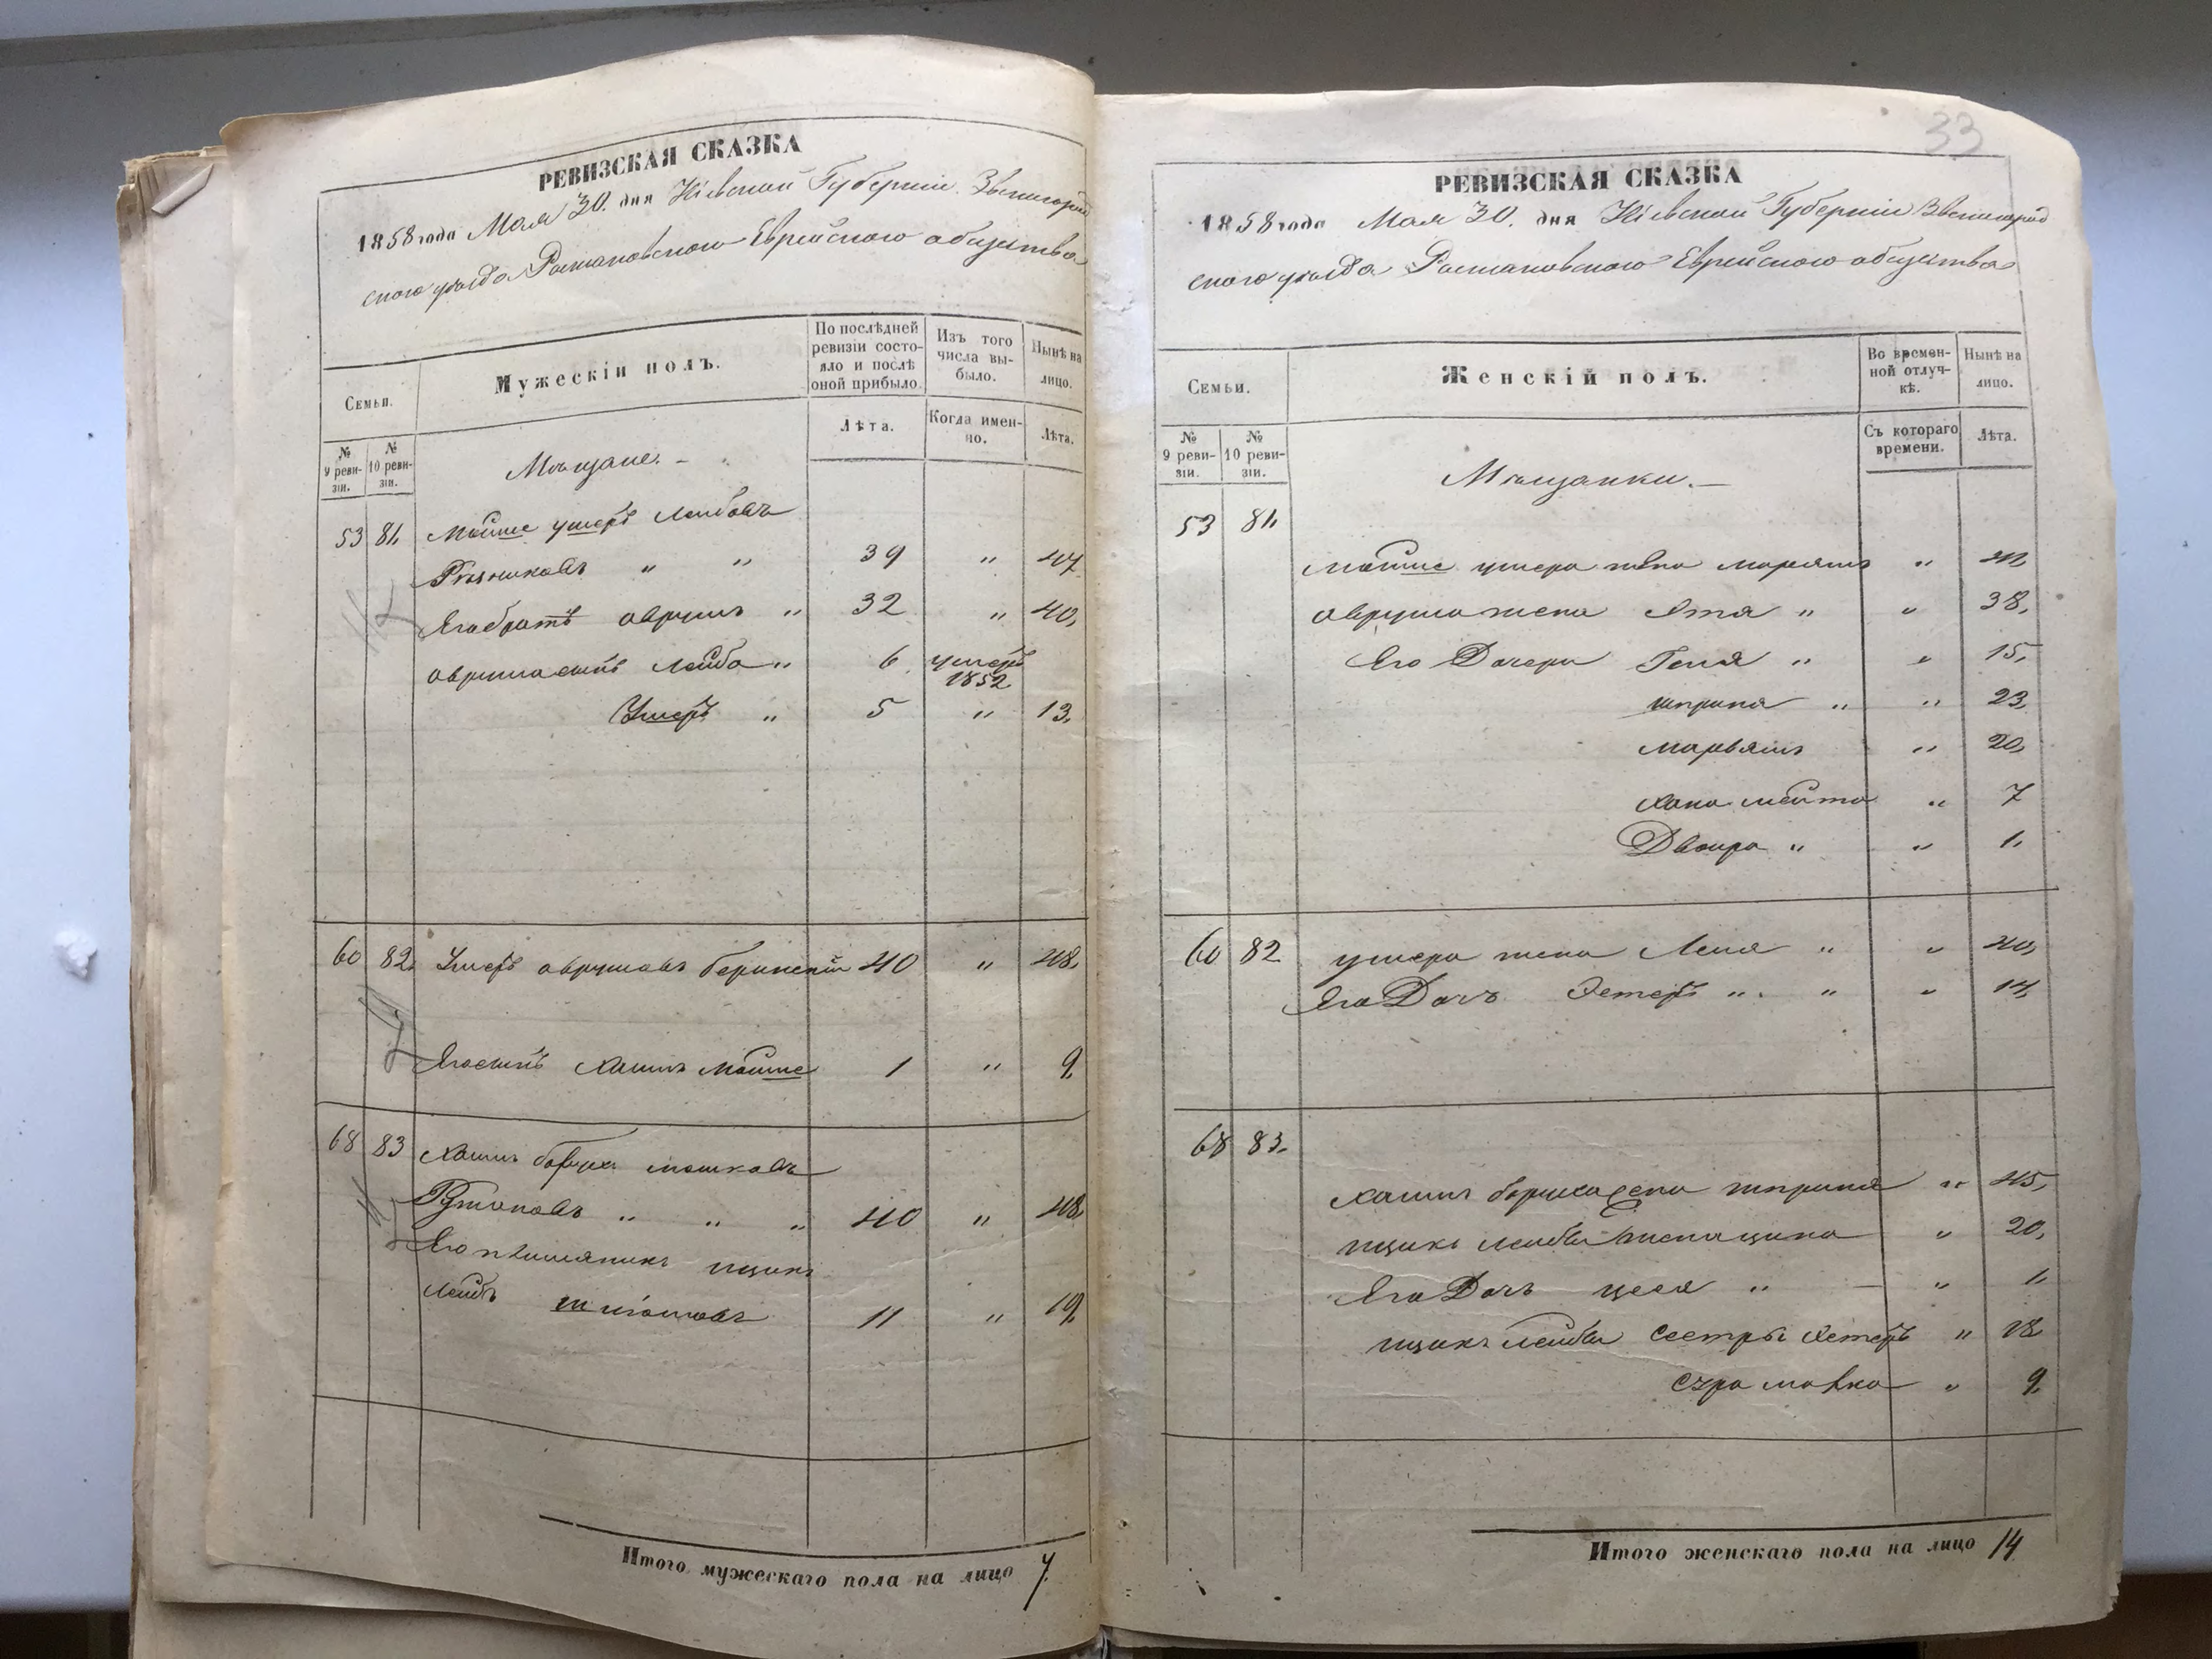 РЕВИЗСКАЯ СКАЗКА
1858 года Мая 30. дня Кіевской Губерніи Звенигород
скаго уѣзда Еврейскаго общества
Семьи.
Мужескій полъ.
По послѣдней ревизіи состояло и послѣ оной прибыло.
Изъ того числа выбыло.
Нынѣ на лицо.
№ 9 ревизіи.
№ 10 ревизіи.
Лѣта.
Когда именно.
Лѣта.
Мѣщане.
53 81, Мойше Ушеръ Лейбовъ
Рѣзниковъ " " 39 " 47
Его братъ Аврумъ " 32 " 40,
Аврума сынъ Лейба " 6 умеръ 1852
Ушеръ " 5 " 13,
60 82, Ушеръ Аврумовъ 40 " 48,
Его сынъ Хаимъ Мойше 1 " 9,
68 83 Хаимъ Борухъ Мошковъ
" " " 40 " 48,
Его племяникъ Ицикъ
Лейбъ 11 " 19,
Итого мужескаго пола на лицо 7.
33
РЕВИЗСКАЯ СКАЗКА
1858 года Мая 30. дня Кіевской Губерніи Звенигород
скаго уѣзда Еврейскаго общества
Семьи.
Женскій полъ.
Во временной отлучкѣ.
Нынѣ на лицо.
№ 9 ревизіи.
№ 10 ревизіи.
Съ котораго времени.
Лѣта.
Мѣщанки.
53 81,
Мойше Ушера жена Марьямъ "
Аврума жена Этя " " 38,
Его Дочери Геня " " 15,
Шприня " " 23,
Марьямъ " 20,
Хана Шейта " 7
Двойра " " 1,
60 82 Ушера жена Леня " " 40,
Его Дочь Эстеръ " " " 14,
68 83,
Хаимъ Боруха жена Шприня " 45,
Ицикъ Лейбы жена " 20,
Его Дочь Цеся " " 1,
Ицикъ Лейбы сестры Эстеръ " 18
Сура Малка " 9,
Итого женскаго пола на лицо 14